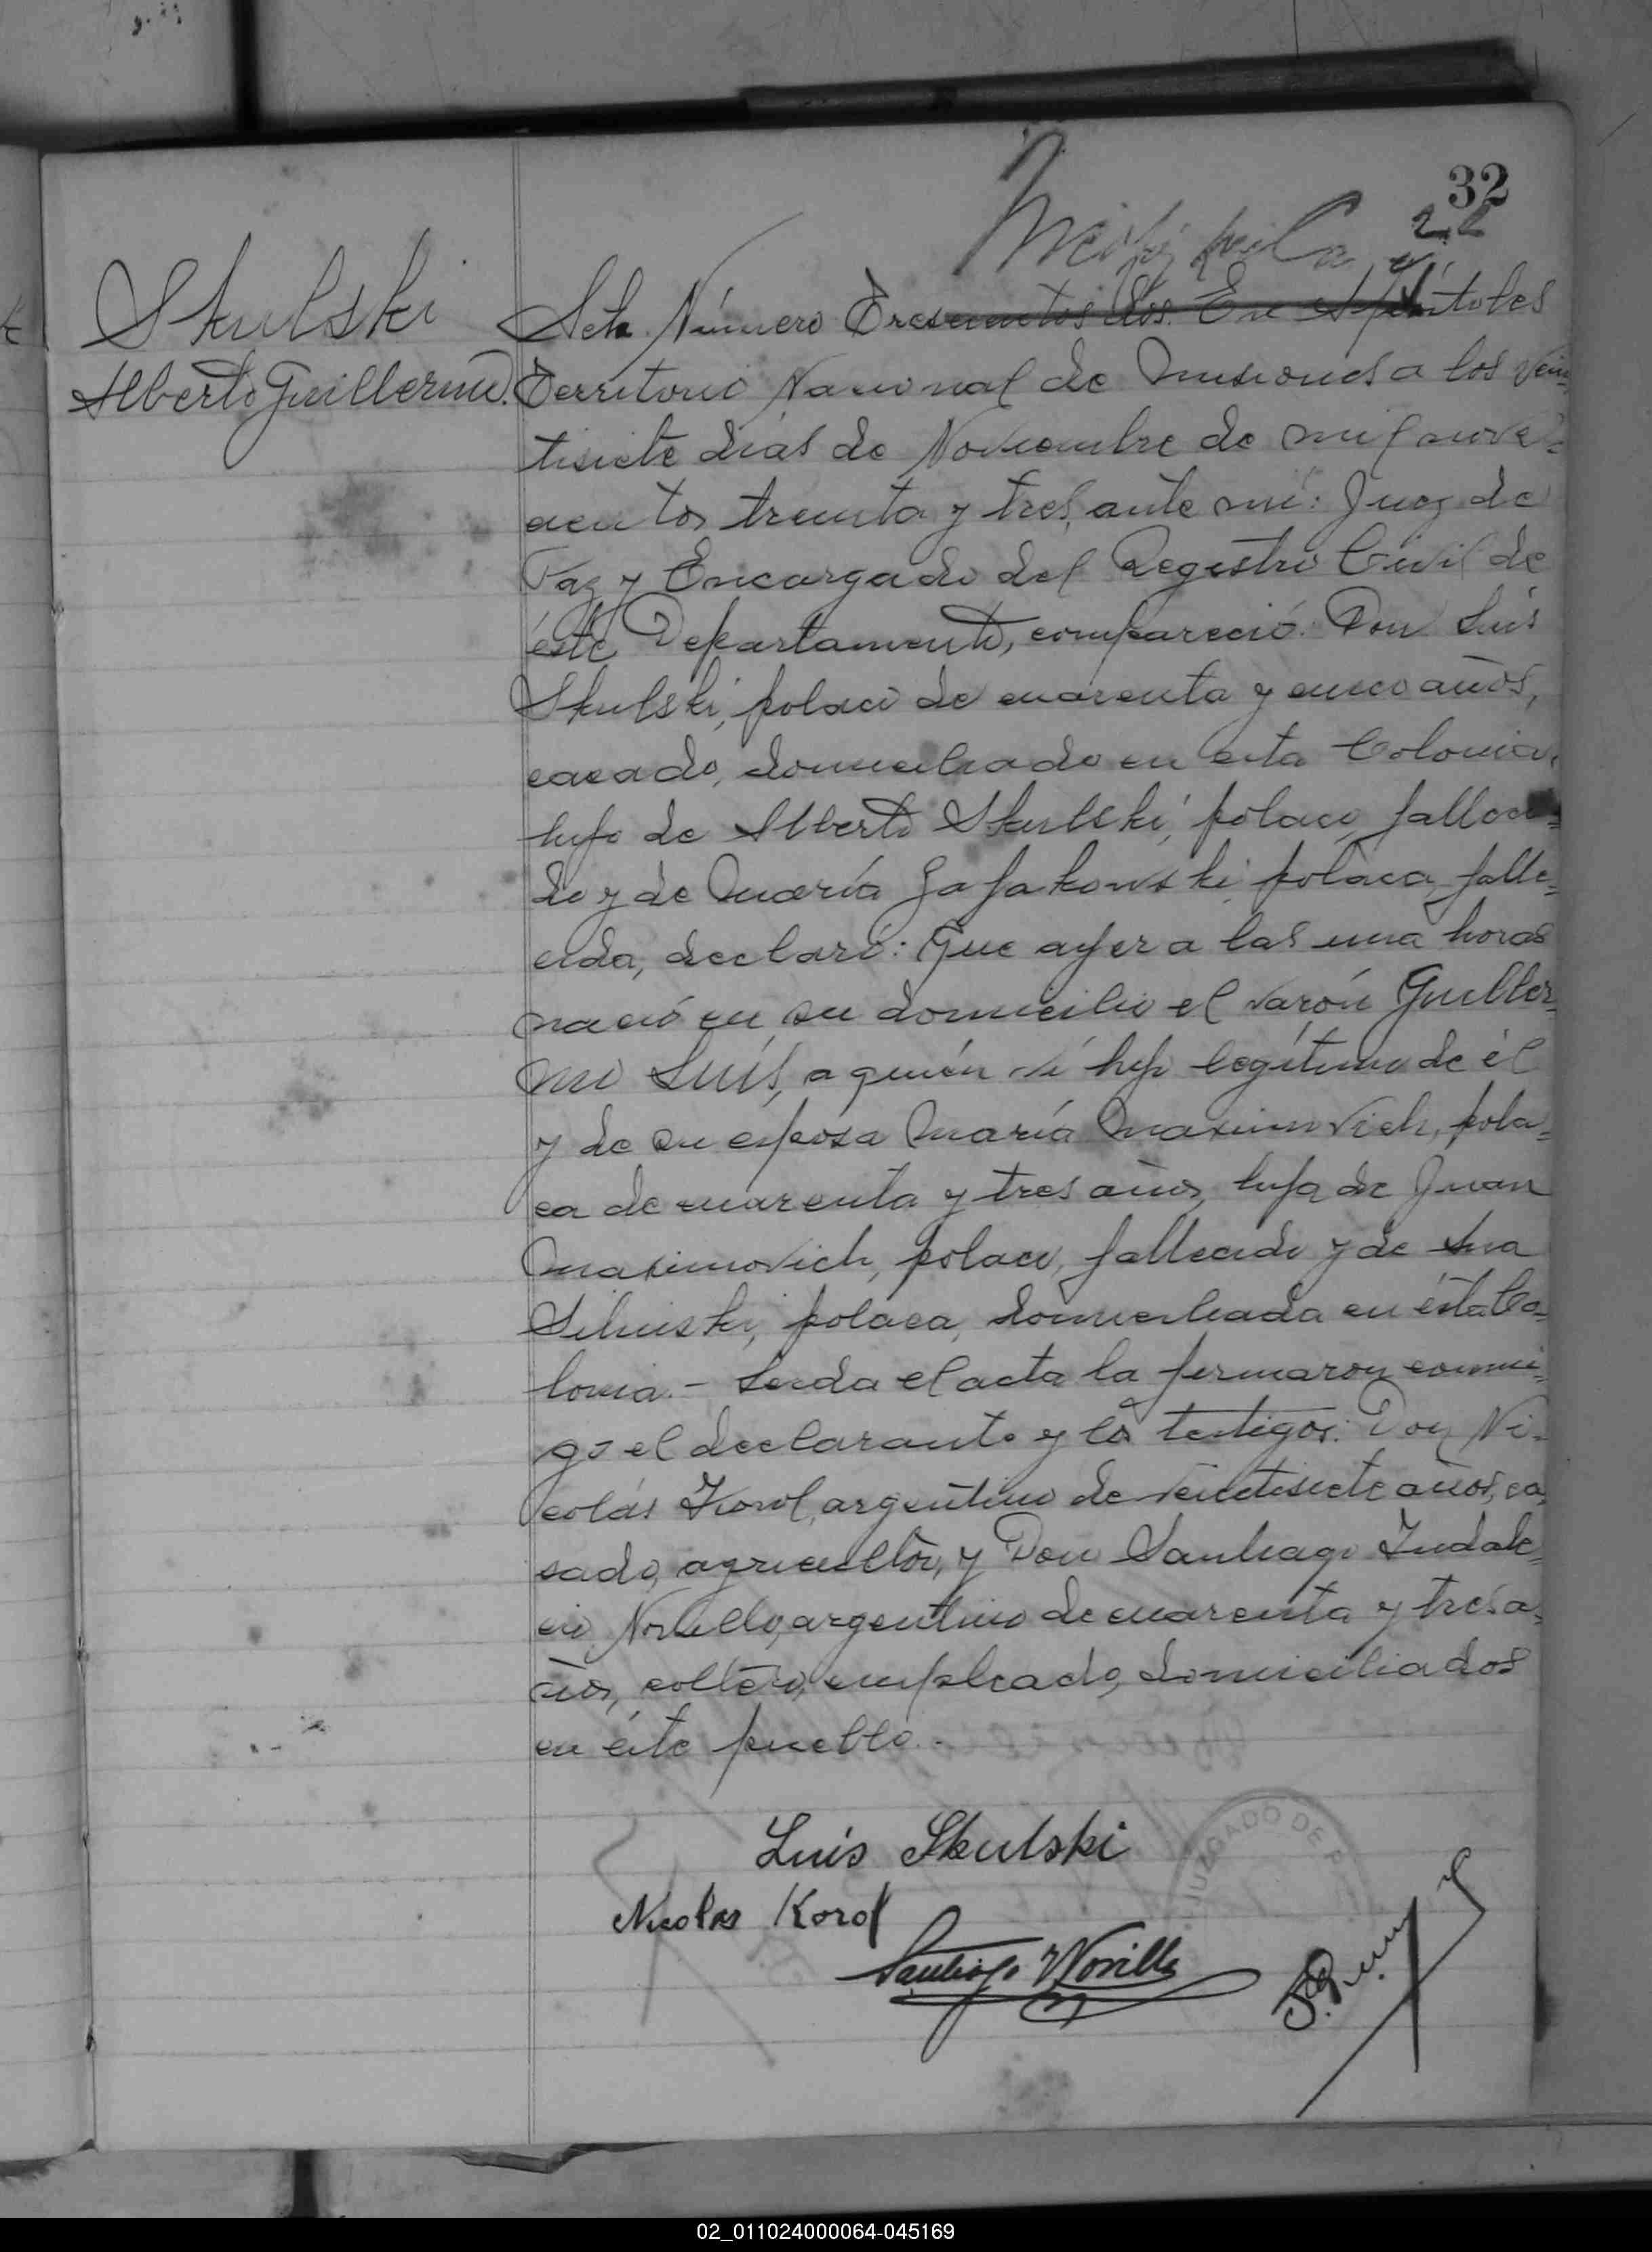 32
22
Skulski
Alberto Guillermo.
Acta Número Trescientos dos. En Apóstoles
Territorio Nacional de Misiones a los vein=
tisiete días de Noviembre de mil nove=
cientos treinta y tres, ante mí: Juez de
Paz y Encargado del Registro Civil de
éste Departamento, compareció: Don Luis
Skulski, polaco de cuarenta y cinco años,
casado, domiciliado en esta Colonia,
hijo de Alberto Skulski, polaco, falleci=
do y de María Gajakowski, polaca, falle=
cida, declaró: Que ayer a las una horas
nació en su domicilio el varón Guiller
mo Luís, a quién vi hijo legítimo de él
y de su esposa María Maximovich, pola=
ca de cuarenta y tres años, hija de Juan
Maximovich, polaco, fallecido y de Ana
polaca, domiciliada en ésta Co=
lonia.- Leída el acta la firmaron conmi=
go el declarante y los testigos: Don Ni=
colás Korol, argentino de veintisiete años, ca
sado, agricultor, y Don Santiago Indale=
cio Novillo, argentino de cuarenta y tres a=
ños, soltero, empleado, domiciliados
en éste pueblo.-
Luis Skulski
JUZGADO DE P
Nicolas Korol
Santiago Y Novillo
02_011024000064-045169